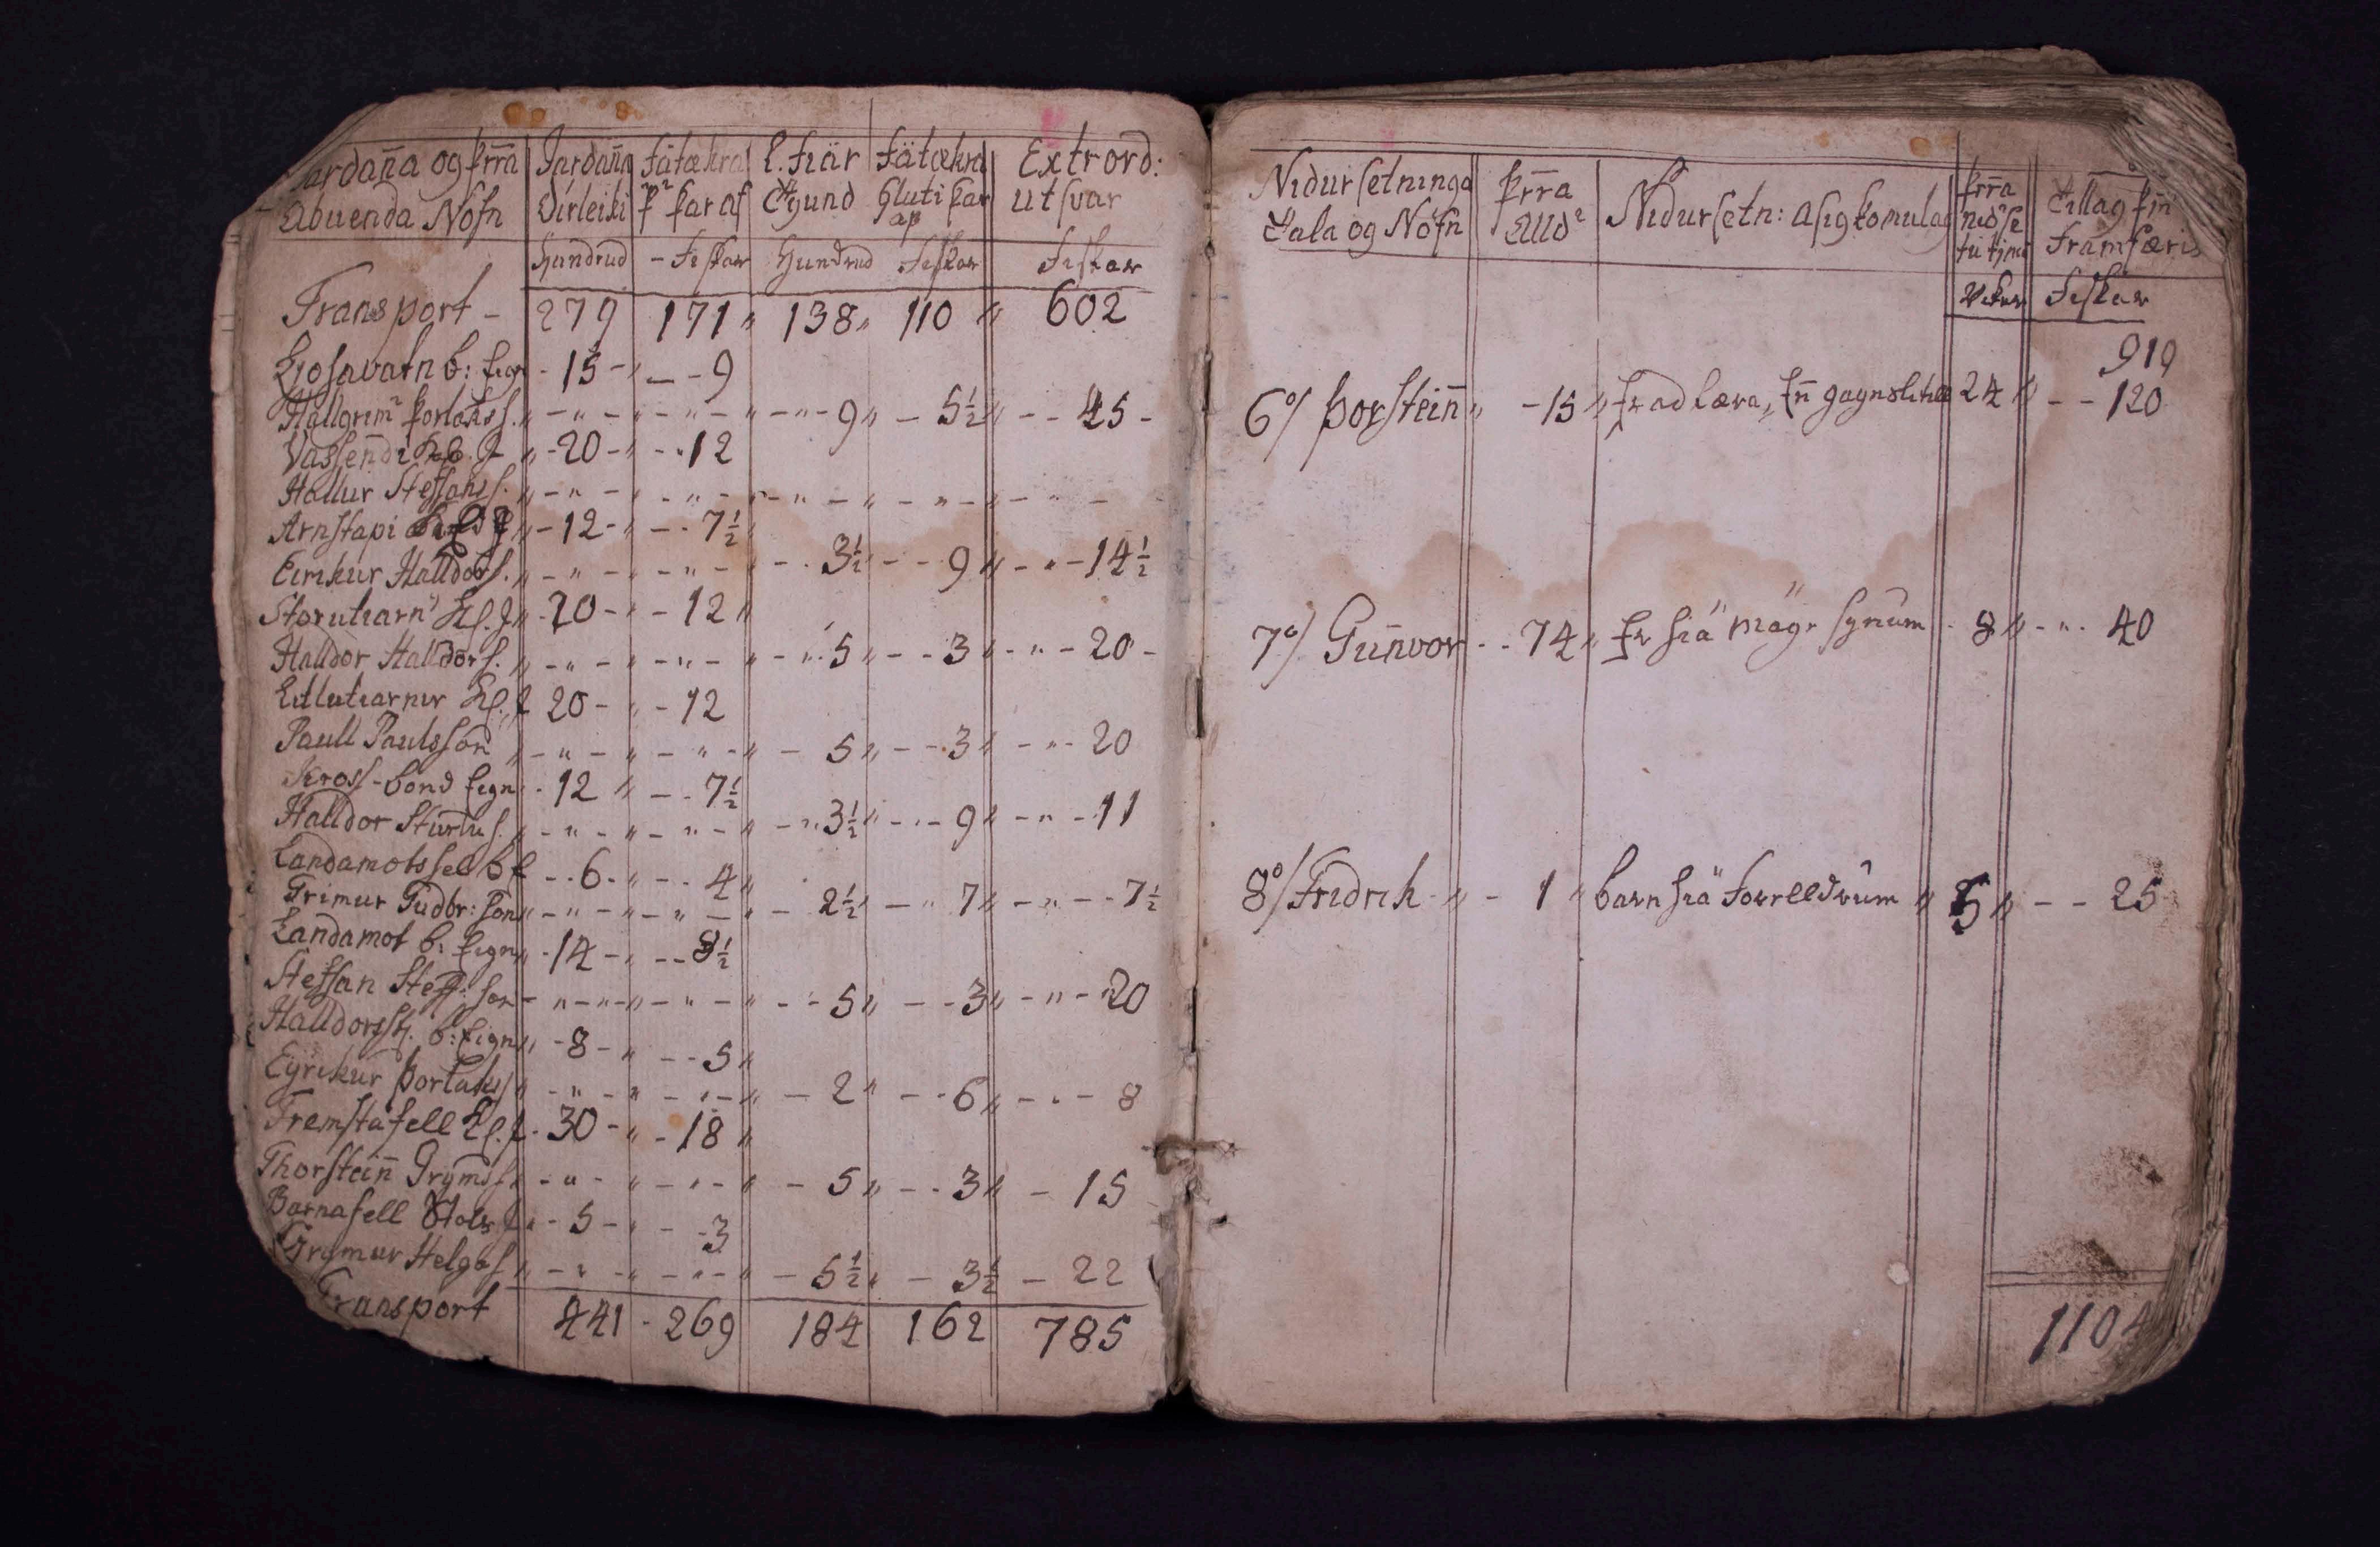 Jardan̄a og þrra | Jardan̄a | fätækra | L. fiär | fätækra | Extrord:
Abuenda Nöfn | Dirleiki | þar af | tÿund | hluti þar af | utsvar
Hundrud - Fiskar Hundrud Fiskar Fiskar
Transport - 279 171 „ 138 „ 110 „ 602
Liosavatn b: eign - 15 - „ - - 9
Hallgrim² Þorlakss. „ - „ - „ - „ - „ - „ - 9 „ - 5½ „ - - 45 -
Vassendi „ - 20 - „ - - 12
Hallur Steffans s. „ - „ - „ - „ - „ - „ - „ - „ - „ - „ -
Arnstapi „ - 12 - „ - - 7½ „
Eirikur Halldors. „ - „ - „ - „ - „ - - 3½ „ - - 9 „ - „ - 14½
Storutiarn² Kl. J „ - 20 - „ - 12 „
Halldor Halldors. „ - „ - „ - „ - „ - „ - 5 „ - - 3 „ - „ - 20 -
Litlutiarnir Kl. J 20 - „ - 12
Paull Paulsson „ - „ - „ - „ - „ - 5 „ - - 3 „ - „ - 20
Kross - bond eign - 12 „ - - 7½
Halldor Sturlu s. „ - „ - „ - „ - „ - „ 3½ „ - - 9 „ - „ - 11
Landamotssel b e - - 6 - „ - - 4 „
Grimur Gudbr: son „ - „ - „ - „ - „ - 2½ „ - „ 7 „ - „ - - 7½
Landamot b: eign „ - 14 - „ - - 8½
Steffan Steff: son - „ - „ - „ - „ - - 5 „ - - 3 „ - „ - 20
Halldorsst. b: eign „ - 8 - „ - - 5 „
Eyrikur Þorlakss „ - „ - „ - „ - „ - 2 „ - - 6 „ - - - 8
Fremstafell Kl. J - 30 - „ - 18 „
Thorstein̄ Grymss. - „ - „ - „ - „ - 5 „ - - 3 „ - 15
Barnafell Stols J „ - 5 - „ - - 3
Grymur Helgas „ - „ - „ - „ - „ - 5½ „ - 3½ - 22
Transport 441 - 269 184 162 785
Nidursetninga | þrra | Nidursetn: Asigkomulag | þrra | Tillag þn̄
Tala og Nöfn | Alld² | nidse | framfæris
tu tjmi
Vikur Fiskar
919
6°/ Þorstein̄ „ - 15 „ er ad læra, en̄ gagnslitill 24 „ - - 120
7°/ Gun̄vor - - 74 „ er hiä mäg² synum - 8 „ - „ - 40
8°/ Fridrik „ - 1 „ barn hiä Forelldrum „ 5 „ - - 25
1104